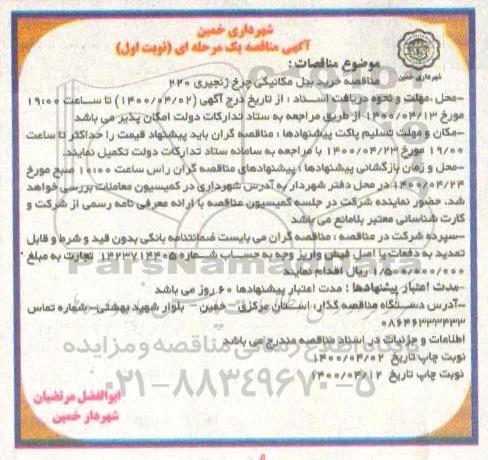 شهرداری خمین
آگهی مناقصه یک مرحله ای (نوبت اول)
شهرداری خمین
موضوع مناقصات:
مناقصه خرید بیل مکانیکی چرخ زنجیری ۲۲۰
-محل ،مهلت و نحوه دریافت اسناد : از تاریخ درج آگهی (۱۴۰۰/۰۴/۰۲) تا ساعت ۱۹:۰۰
مورخ ۱۴۰۰/۰۴/۱۳ از طریق مراجعه به ستاد تدارکات دولت امکان پذیر می باشد
-مکان و مهلت تسلیم پاکت پیشنهادها : مناقصه گران باید پیشنهاد قیمت را حداکثر تا ساعت
۱۹/۰۰ مورخ ۱۴۰۰/۰۴/۲۳ با مراجعه به سامانه ستاد تدارکات دولت تکمیل نمایند.
-محل و زمان بازگشائی پیشنهادها : پیشنهادهای مناقصه گران راس ساعت ۱۰:۰۰ صبح مورخ
۱۴۰۰/۰۴/۲۴ در محل دفتر شهردار به آدرس شهرداری در کمیسیون معاملات بررسی خواهد
شد. حضور نماینده شرکت در جلسه کمیسیون مناقصه با ارائه معرفی نامه رسمی از شرکت و
کارت شناسائی معتبر بلامانع می باشد
-سپرده شرکت در مناقصه : مناقصه گران می بایست ضمانتنامه بانکی بدون قید و شرط و قابل
تمدید به دفعات یا اصل فیش واریز وجه به حساب شماره ۱۴۲۳۷۱۴۴۰۵ تجارت به مبلغ
۱/۵۰۰/۰۰۰/۰۰۰ ریال اقدام نمایند
-مدت اعتبار پیشنهادها : مدت اعتبار پیشنهادها ۶۰ روز می باشد
-آدرس دستگاه مناقصه گذار: استان مرکزی - خمین - بلوار شهید بهشتی-شماره تماس
۰۸۶۴۶۳۳۳۴۳۳
اطلاعات و جزئیات در اسناد مناقصه مندرج می باشد
نوبت چاپ تاریخ ۱۴۰۰/۰۴/۰۲
نوبت چاپ تاریخ ۱۴۰۰/۰۴/۱۲
ابوالفضل مرتضیان
شهردار خمین
۰۲۱-۸۸۳۴۹۶۷۰-۵